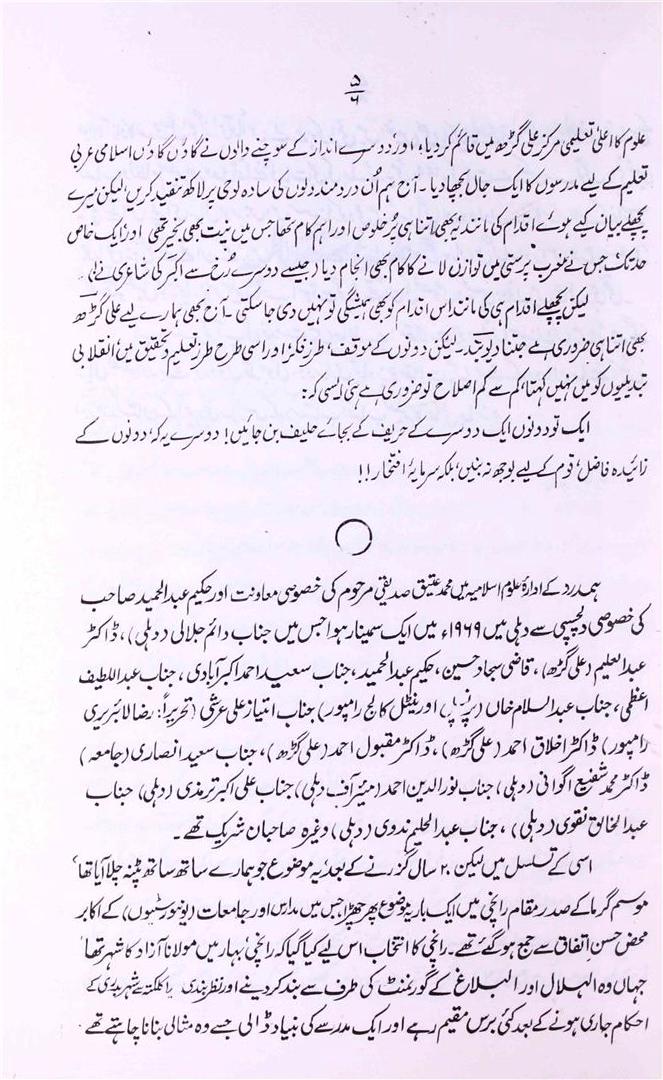 ۵
۶
علوم کا اعلیٰ تعلیمی مرکز علی گڑھ میں قائم کر دیا، اور دوسرے انداز کے سوچنے والوں نے گاؤں گاؤں اسلامی عربی
تعلیم کے لیے مدرسوں کا ایک جال بچھا دیا۔ آج ہم اُن دردمند دلوں کی سادہ لوحی پر لاکھ تنقید کریں لیکن میرے
پچھلے بیان کیے ہوئے اقدام کی مانند یہ بھی اتنا ہی پُرخلوص اور اہم کام تھا جس میں نیت بھی بخیر تھی اور ایک خاص
حد تک جس نے مغرب پرستی میں توازن لانے کا کام بھی انجام دیا (جیسے دوسرے رُخ سے اکبر کی شاعری نے)۔
لیکن پچھلے اقدام ہی کی مانند اس اقدام کو بھی ہمیشگی تو نہیں دی جا سکتی۔ آج بھی ہمارے لیے علی گڑھ
بھی اتنا ہی ضروری ہے جتنا دیوبند۔ لیکن دونوں کے موقف، طرز فکر اور اسی طرح طرز تعلیم و تحقیق میں انقلابی
تبدیلیوں کو میں نہیں کہتا، کم سے کم اصلاح تو ضروری ہے ہی ایسی کہ:
ایک تو دونوں ایک دوسرے کے حریف کے بجائے حلیف بن جائیں! دوسرے یہ کہ دونوں کے
زائیدہ فاضل، قوم کے لیے بوجھ نہ بنیں، بلکہ سرمایۂ افتخار!!
ہمدرد کے ادارۂ علوم اسلامیہ میں محمد عتیق صدیقی مرحوم کی خصوصی معاونت اور حکیم عبدالحمید صاحب
کی خصوصی دلچسپی سے دہلی میں ۱۹۶۹ء میں ایک سمینار ہوا جس میں جناب دائم جلالی (دہلی)، ڈاکٹر
عبدالعلیم (علی گڑھ)، قاضی سجاد حسین، حکیم عبدالحمید، جناب سعید احمد اکبرآبادی، جناب عبداللطیف
اعظمی، جناب عبدالسلام خاں (پرنسپل اورینٹل کالج رامپور) جناب امتیاز علی عرشی (تحریراً: رضا لائبریری
رامپور) ڈاکٹر اخلاق احمد (علی گڑھ)، ڈاکٹر مقبول احمد (علی گڑھ)، جناب سعید انصاری (جامعہ)
ڈاکٹر محمد شفیع اگوانی (دہلی)، جناب نورالدین احمد (میئر آف دہلی) جناب علی اکبر ترمذی (دہلی) جناب
عبدالخالق نقوی (دہلی)، جناب عبدالحلیم ندوی (دہلی) وغیرہ صاحبان شریک تھے۔
اسی کے تسلسل میں لیکن ۲۰ سال گزرنے کے بعد یہ موضوع جو ہمارے ساتھ ساتھ پٹنہ چلا آیا تھا،
موسم گرما کے صدر مقام رانچی میں ایک بار یہ موضوع پھر چھڑا جس میں مدارس اور جامعات (یونیورسٹیوں) کے اکابر
محض حسن اتفاق سے جمع ہو گئے تھے۔ رانچی کا انتخاب اس لیے کیا گیا کہ رانچی، بہار میں مولانا آزاد کا شہر تھا
جہاں وہ الہلال اور البلاغ کے گورنمنٹ کی طرف سے بند کر دینے اور نظر بندی یا کلکتہ سے شہربدری کے
احکام جاری ہونے کے بعد کئی برس مقیم رہے اور ایک مدرسے کی بنیاد ڈالی جسے وہ مثالی بنانا چاہتے تھے